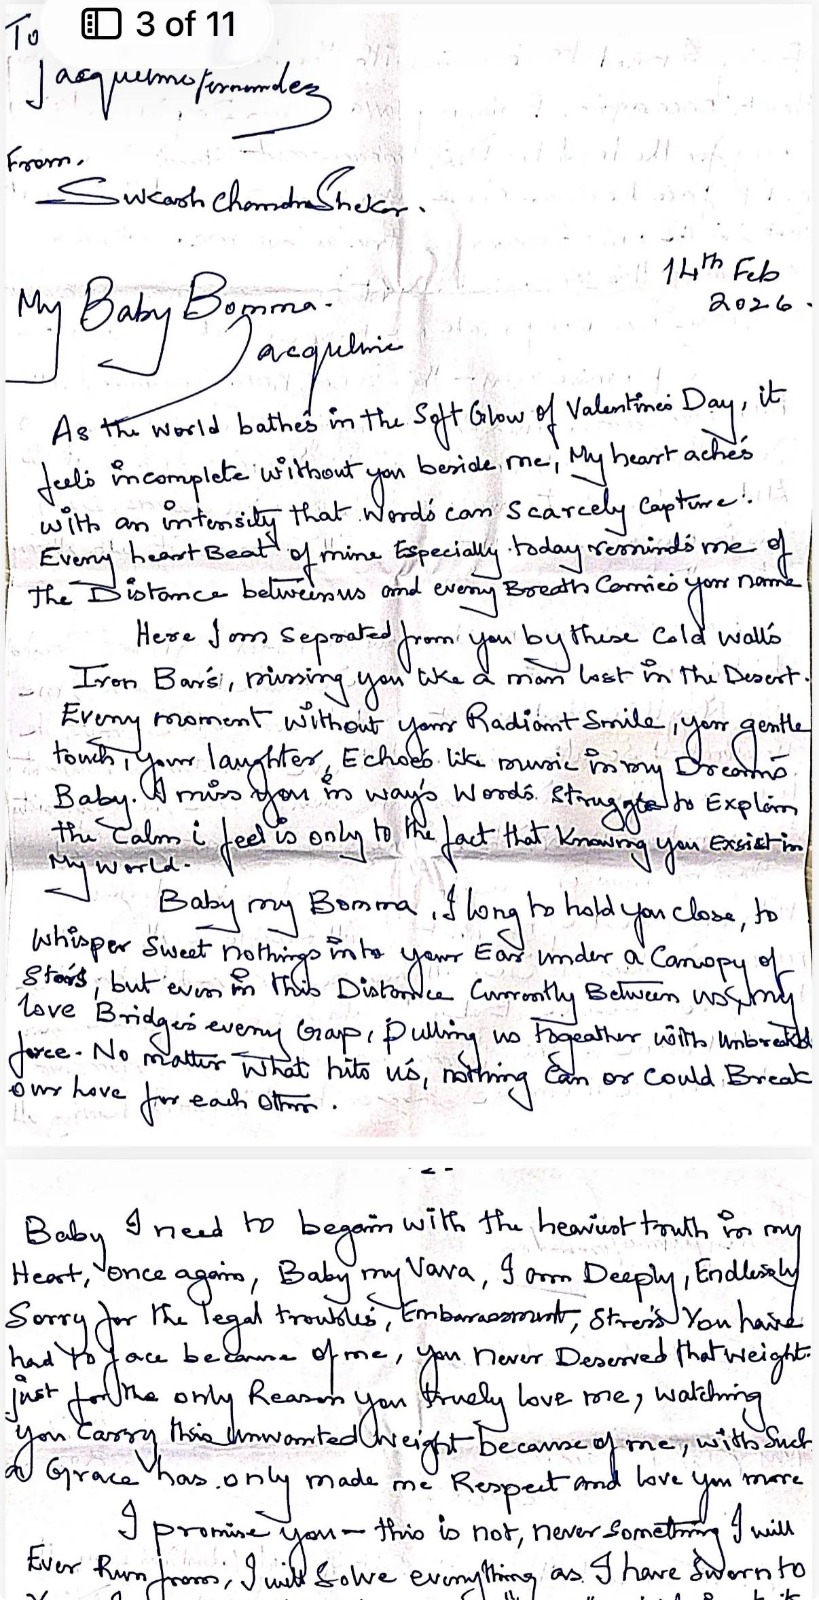 3 of 11
To
Jacqueline Fernandez
From,
Sukash ChandraShekar.
14th Feb
2026.
My Baby Bomma.
Jacqueline
As the world bathes in the Soft Glow of Valentines Day, it
feels incomplete without you beside me, My heart aches
with an intensity that words can Scarcely Capture.
Every heart Beat of mine Especially today reminds me of
the Distance between us and every Breath Carries your name
Here I am Seprated from you by these Cold walls
Iron Bars, missing you like a man lost in the Desert.
Every moment without your Radiant Smile, your gentle
touch, your laughter, Echoes like music in my Dreams
Baby. I miss you in ways Words Struggle to Explain
the Calm i feel is only to the fact that Knowing you Exsist in
My world.
Baby my Bomma, I long to hold you close, to
whisper Sweet nothings into your Ear under a Canopy of
Stars, but even in this Distance Currently Between us, my
love Bridges every Gap, Pulling us Together with
force. No matter what hits us, nothing Can or Could Break
our Love for each other.
-2-
Baby I need to begain with the heaviest truth in my
Heart, once again, Baby my Vava, I am Deeply, Endlessly
Sorry for the legal troubles, Embarassment, Stress You have
had to face because of me, you never Deserved that weight.
just for the only Reason you truely love me, watching
you Carry this Unwanted Weight because of me, with Such
a Grace has only made me Respect and love you more
I promise you - this is not, never Something I will
Ever Run from, I will Solve everything as I have Sworn to